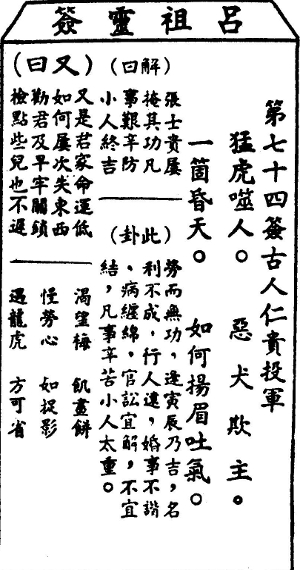 呂祖靈簽
第七十四簽古人仁貴投軍
猛虎噬人。 惡犬欺主。
一箇昏天。 如何揚眉吐氣。
(解曰)
張士貴屢
掩其功凡
事艱辛防
小人終吉
(此卦)
勞而無功,逢寅辰乃吉,名
利不成,行人遠,婚事不諧
、病纏綿,官訟宜解,不宜
結,凡事辛苦小人太重。
(又曰)
又是君家命運低
如何屢次失東西
勸君及早牢關鎖
檢點些兒也不遲
渴望梅 飢畫餅
怪勞心 如捉影
遇龍虎 方可省